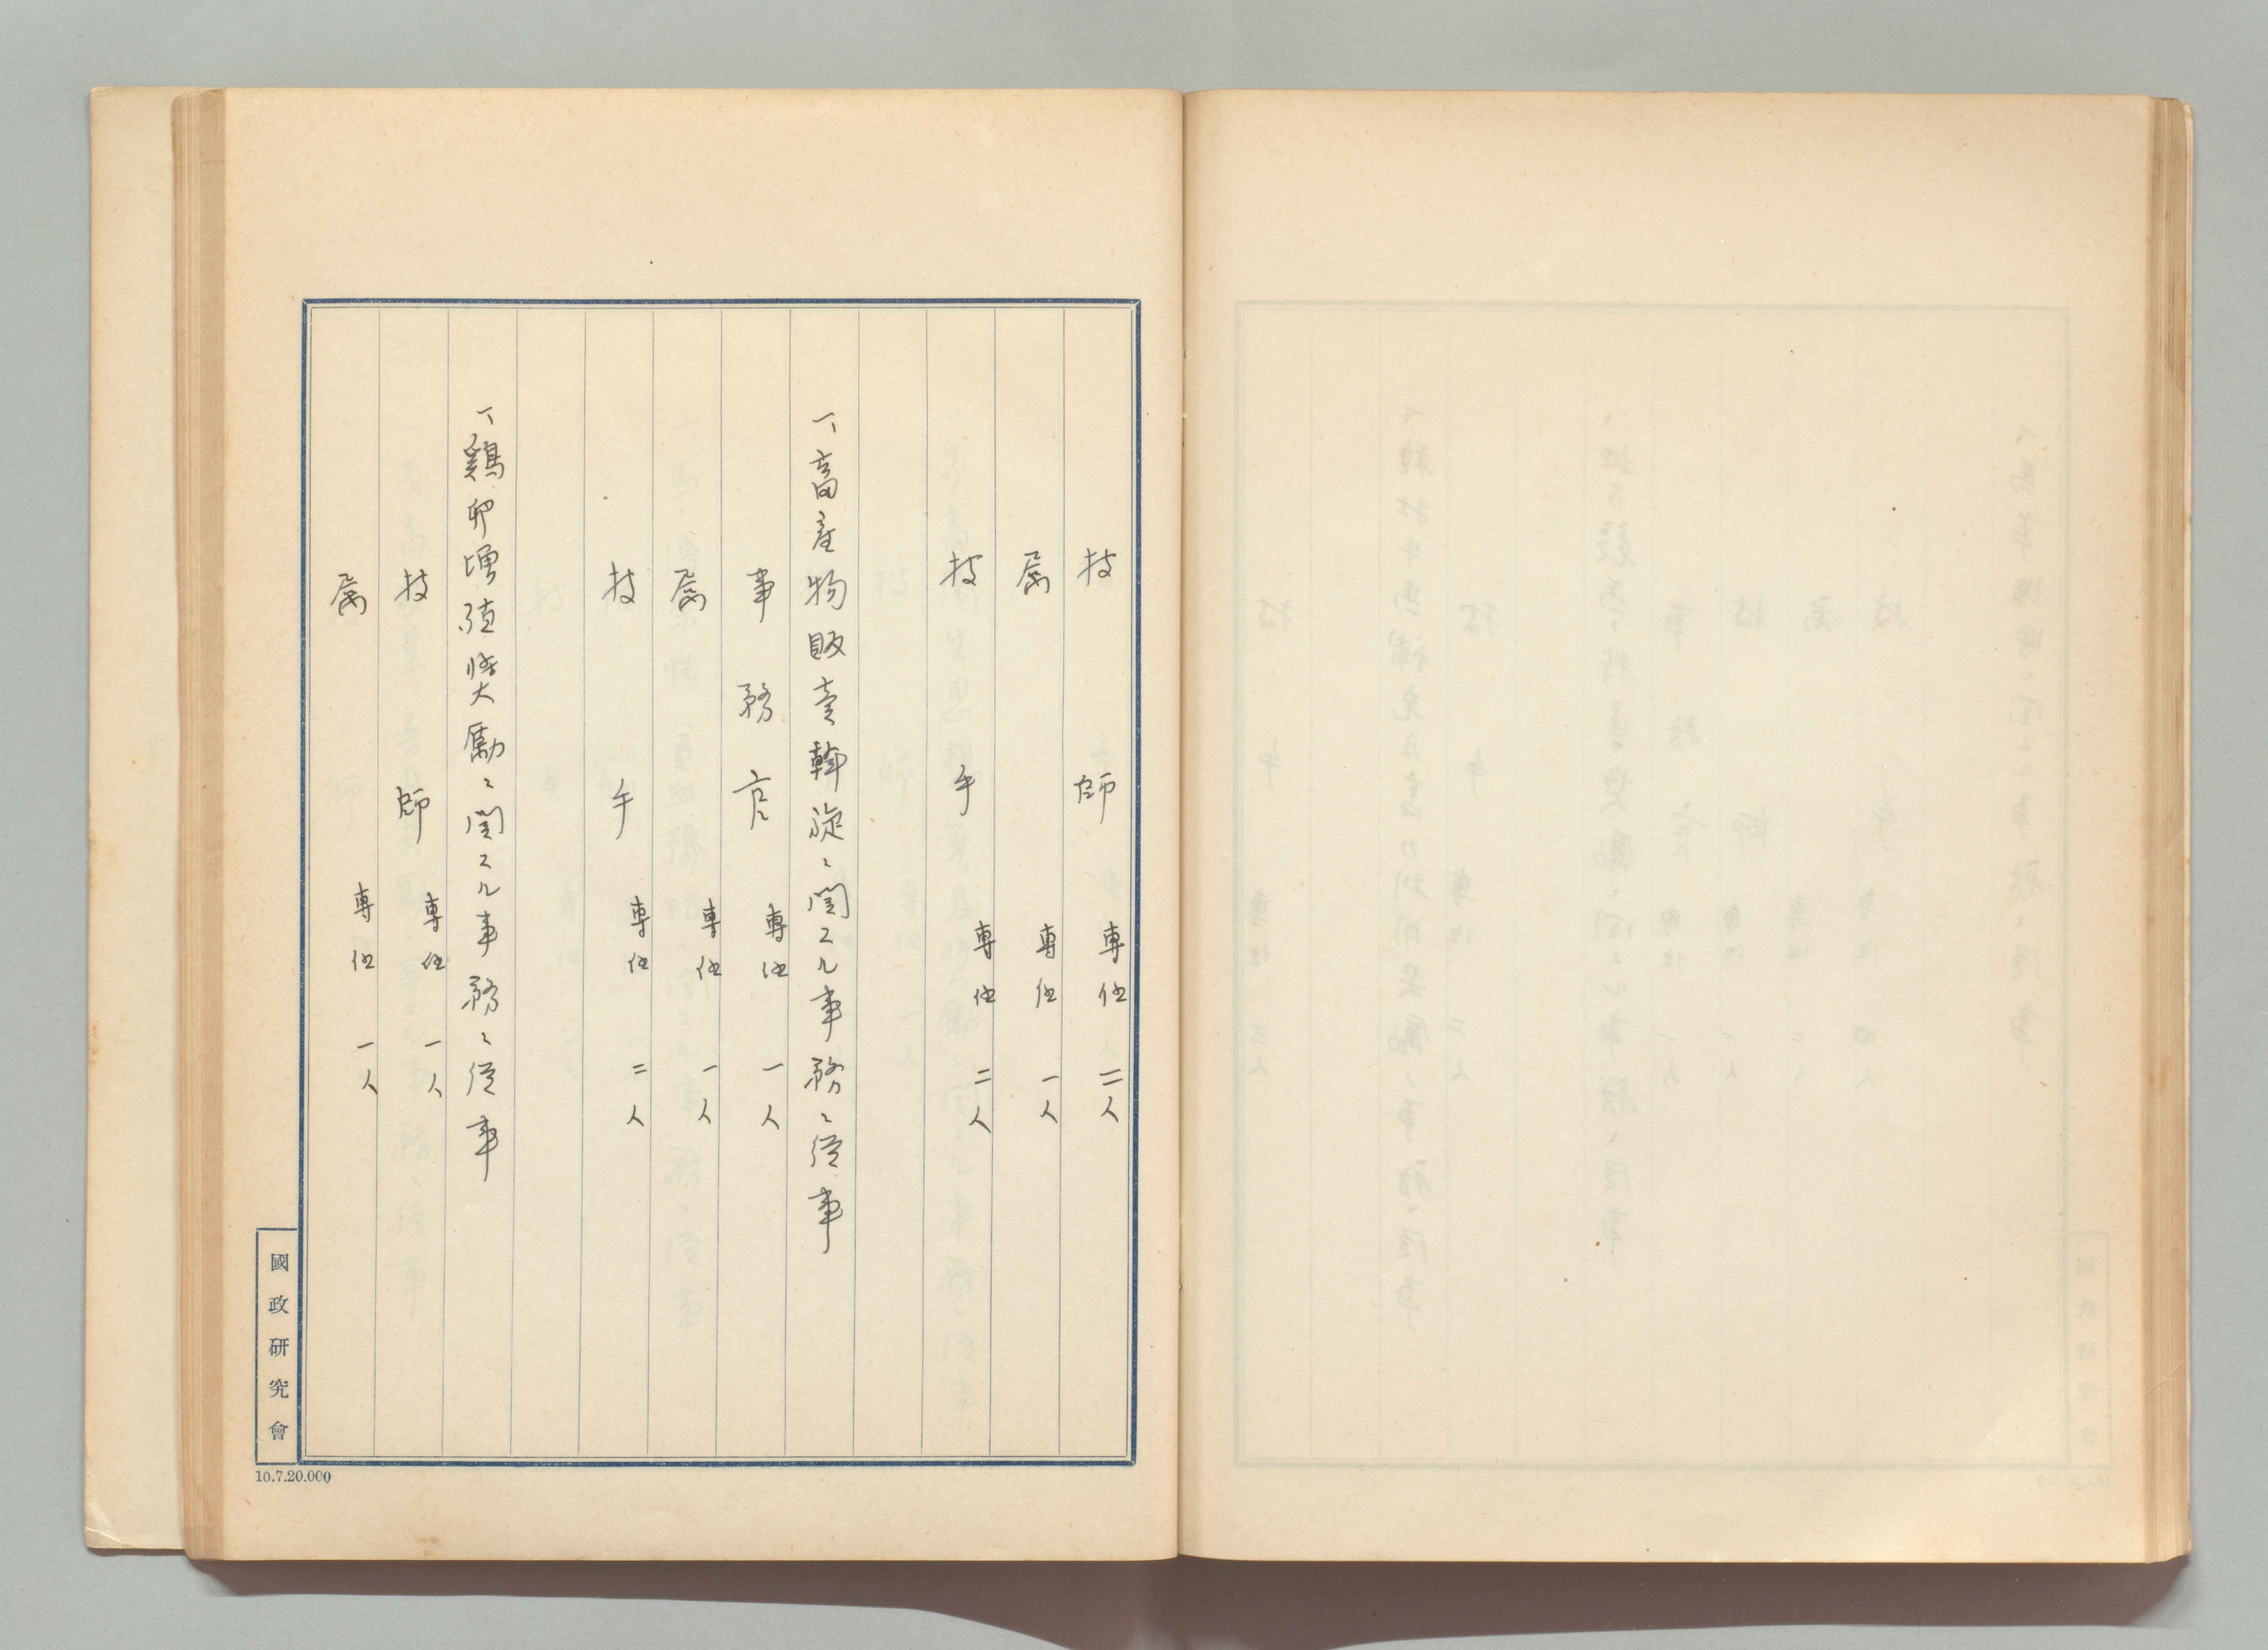 技師 専任 二人
属 専任 一人
技手 専任 二人
一、畜産物販売斡旋ニ関スル事務ニ従事
事務官 専任 一人
属 専任 一人
技手 専任 二人
一、鶏卵増殖奨励ニ関スル事務ニ従事
技師 専任 一人
属 専任 一人
國政研究會
10.7.20.000